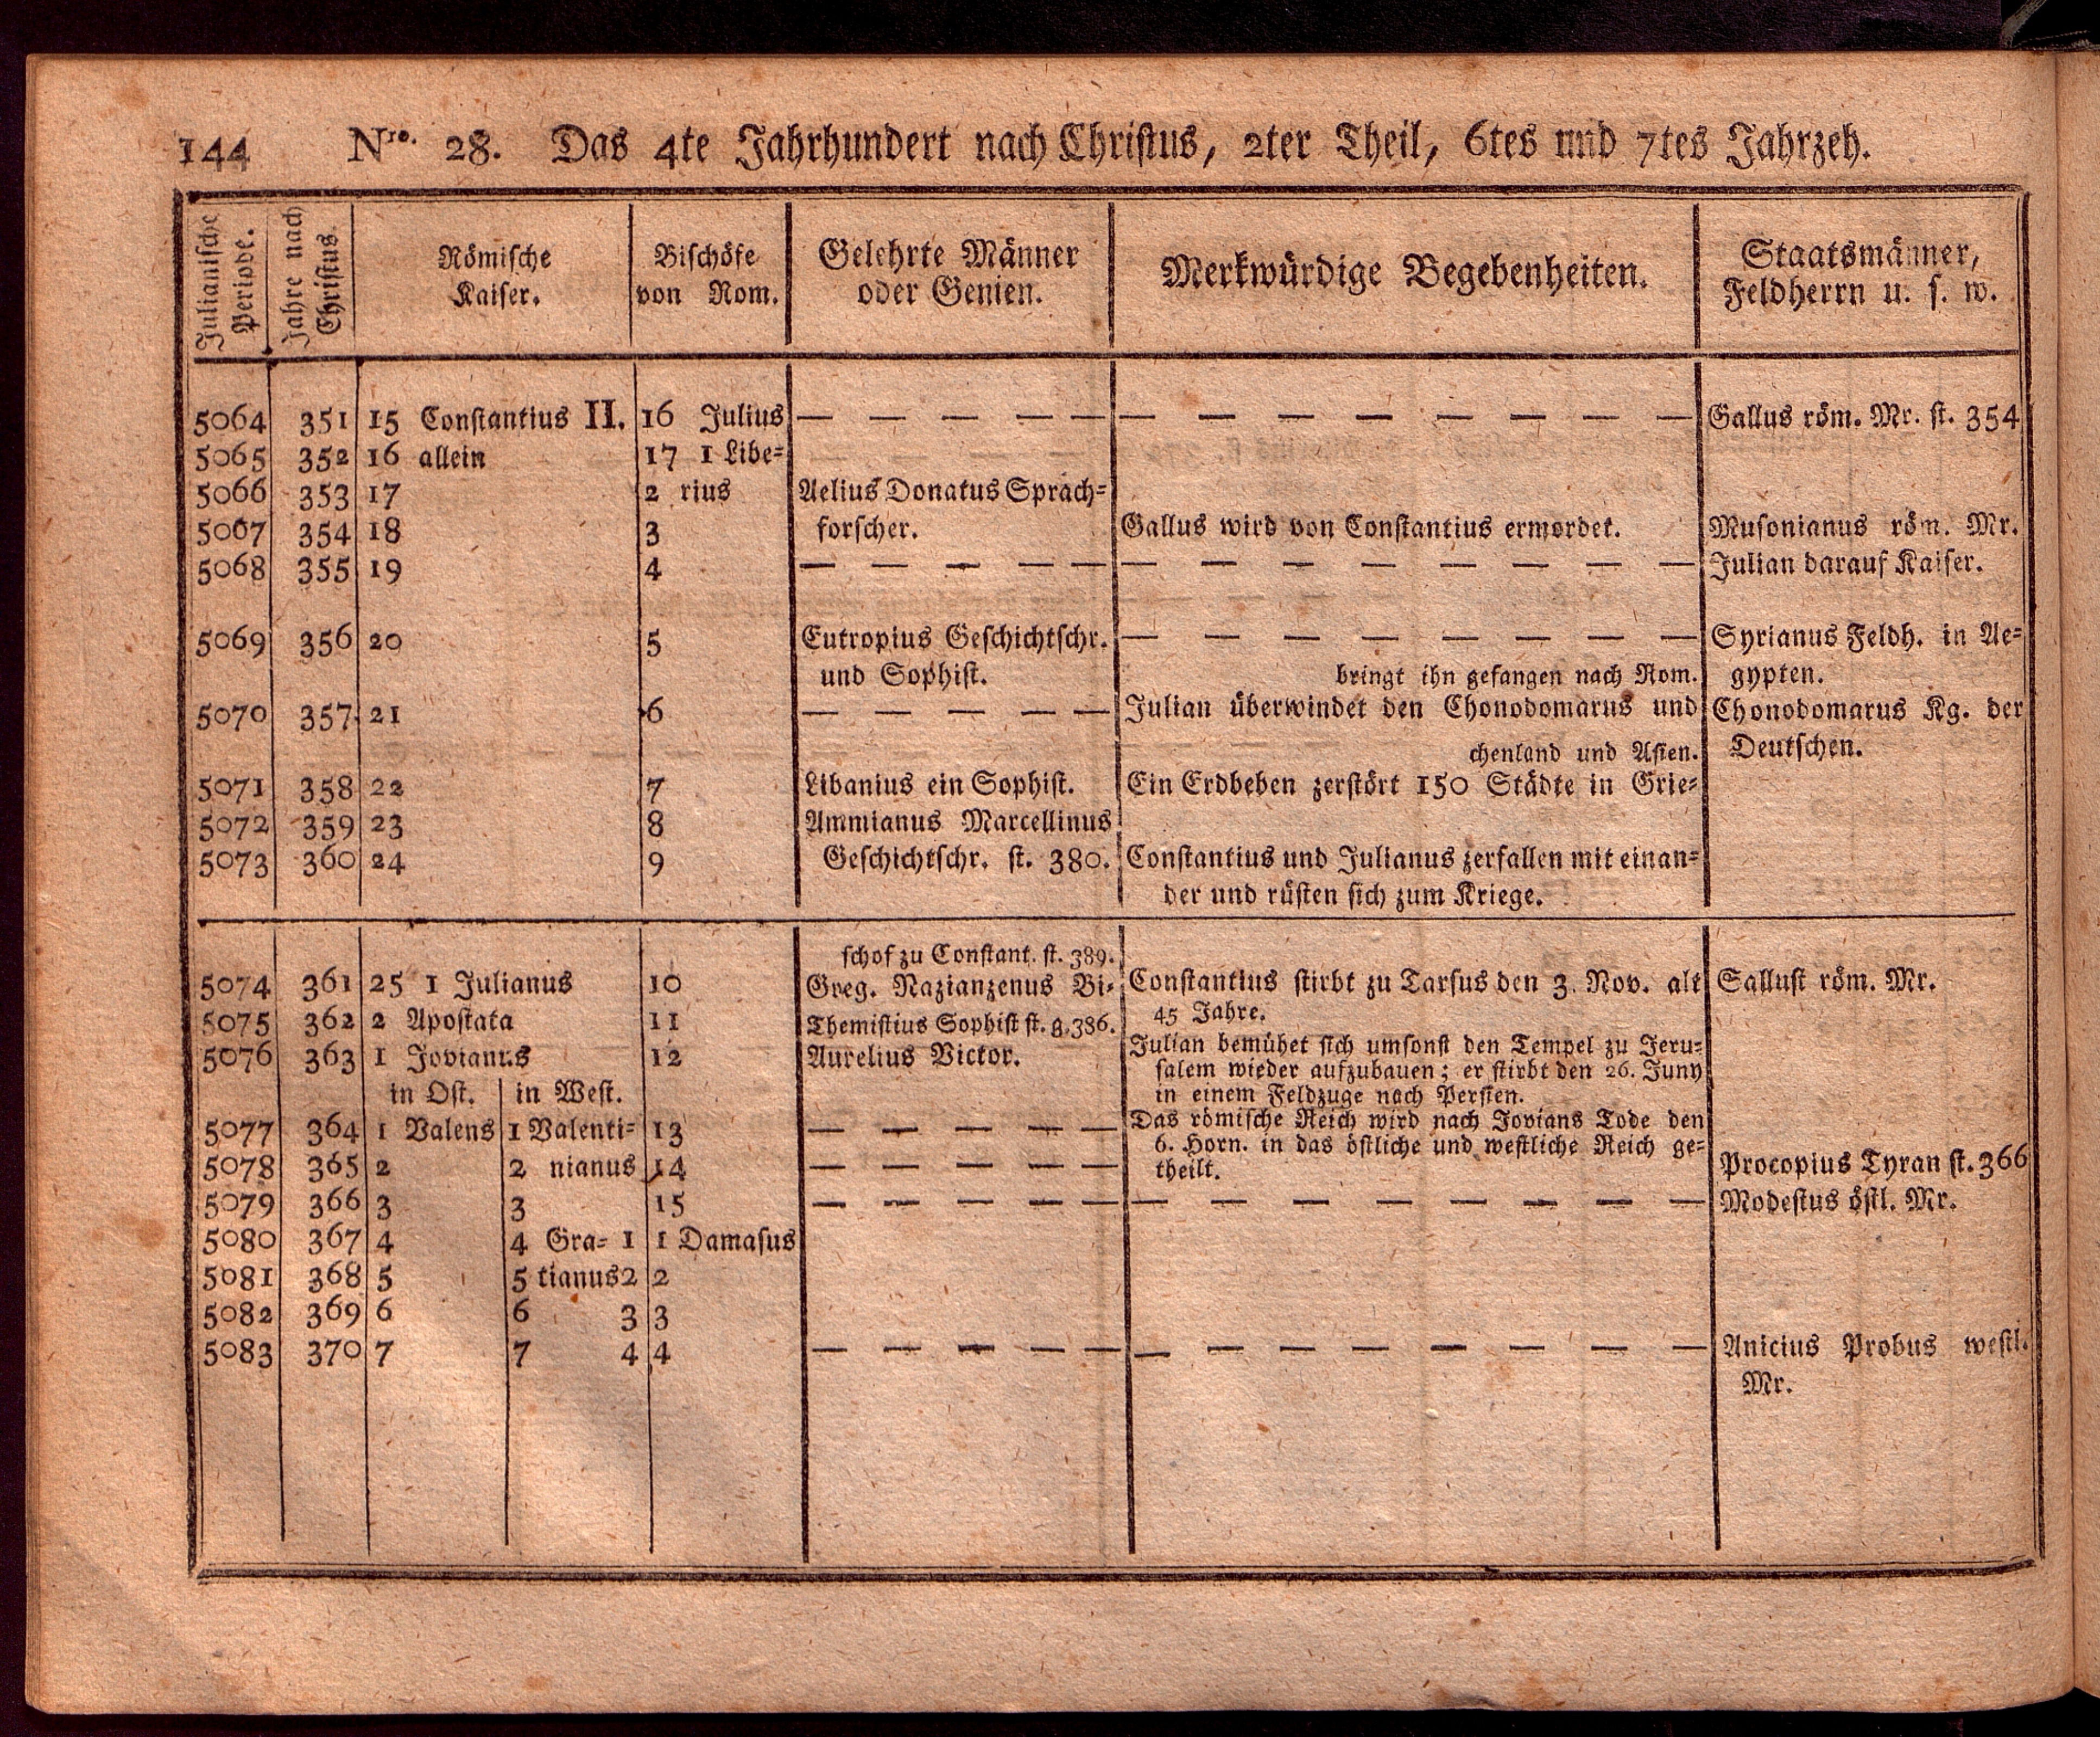 144 Nro. 28. Das 4te Jahrhundert nach Christus, 2ter Theil, 6tes und 7tes Jahrzeh.
Julianische Periode. | Jahre nach Christus. | Römische Kaiser. | Bischöfe von Rom. | Gelehrte Männer oder Genien. | Merkwürdige Begebenheiten. | Staatsmänner, Feldherrn u. s. w.
5064 351 15 Constantius II. 16 Julius — — — — — — — — — — — — — Gallus röm. Mr. st. 354
5065 352 16 allein 17 1 Libe=
5066 353 17 2 rius Aelius Donatus Sprach=
5067 354 18 3 forscher. Gallus wird von Constantius ermordet. Musonianus röm. Mr.
5068 355 19 4 — — — — — — — — — — — — — Julian darauf Kaiser.
5069 356 20 5 Eutropius Geschichtschr. — — — — — — — — Syrianus Feldh. in Ae=
und Sophist. bringt ihn gefangen nach Rom. gypten.
5070 357 21 6 — — — — — Julian überwindet den Chonodomarus und Chonodomarus Kg. der
chenland und Asien. Deutschen.
5071 358 22 7 Libanius ein Sophist. Ein Erdbeben zerstört 150 Städte in Grie=
5072 359 23 8 Ammianus Marcellinus
5073 360 24 9 Geschichtschr. st. 380. Constantius und Julianus zerfallen mit einan=
der und rüsten sich zum Kriege.
schof zu Constant. st. 389.
5074 361 25 1 Julianus 10 Greg. Nazianzenus Bi= Constantius stirbt zu Tarsus den 3. Nov. alt Sallust röm. Mr.
5075 362 2 Apostata 11 Themistius Sophist st. g. 386. 45 Jahre.
5076 363 1 Jovianus 12 Aurelius Victor. Julian bemühet sich umsonst den Tempel zu Jeru=
salem wieder aufzubauen; er stirbt den 26. Juny
in Ost. in West. in einem Feldzuge nach Persien.
5077 364 1 Valens 1 Valenti= 13 — — — — — Das römische Reich wird nach Jovians Tode den
6. Horn. in das östliche und westliche Reich ge=
5078 365 2 2 nianus 14 — — — — — theilt. Procopius Tyran st. 366
5079 366 3 3 15 — — — — — — — — — — — — — Modestus östl. Mr.
5080 367 4 4 Gra= 1 1 Damasus
5081 368 5 5 tianus 2 2
5082 369 6 6 3 3
5083 370 7 7 4 4 — — — — — — — — — — — — — Anicius Probus westl.
Mr.